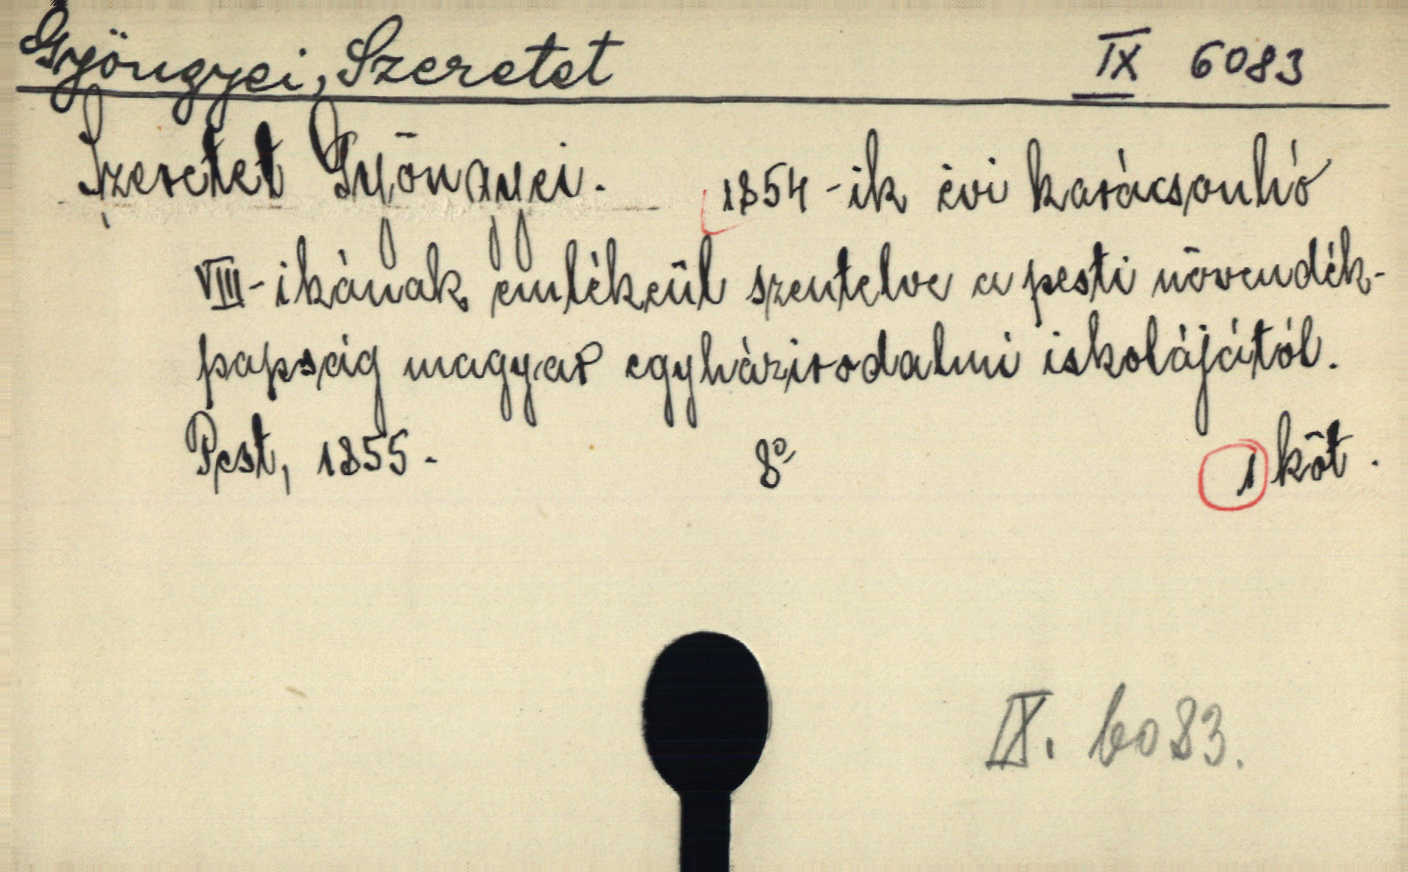 Gyöngyei, Szeretet IX 6083
Szeretet Gyöngyei. 1854-ik évi karácsonhó
VIII-ikának emlékeül szentelve a pesti növendék-
papság magyar egyházirodalmi iskolájától.
Pest, 1855. 8° 1 köt.
IX. 6083.